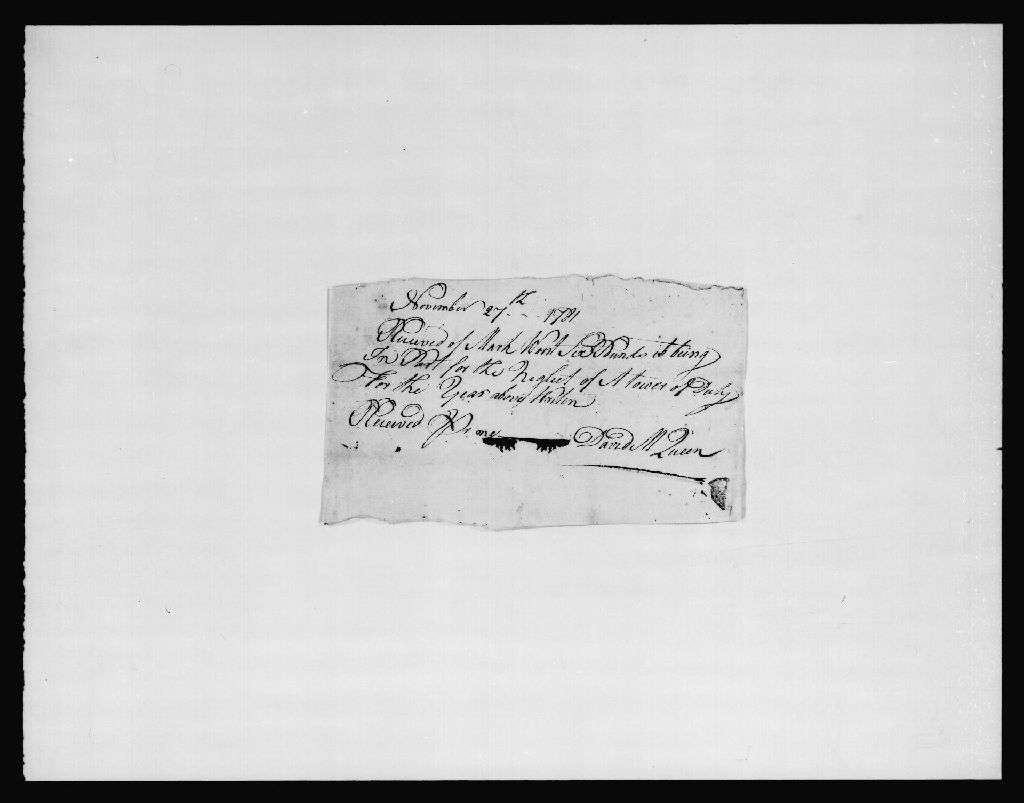 November 27th 1781
Received of Mark Kent Six Pounds it being
In Part for the Neglect of A tower of Duty
For the Year above Writen
Received Pr me David McQueen